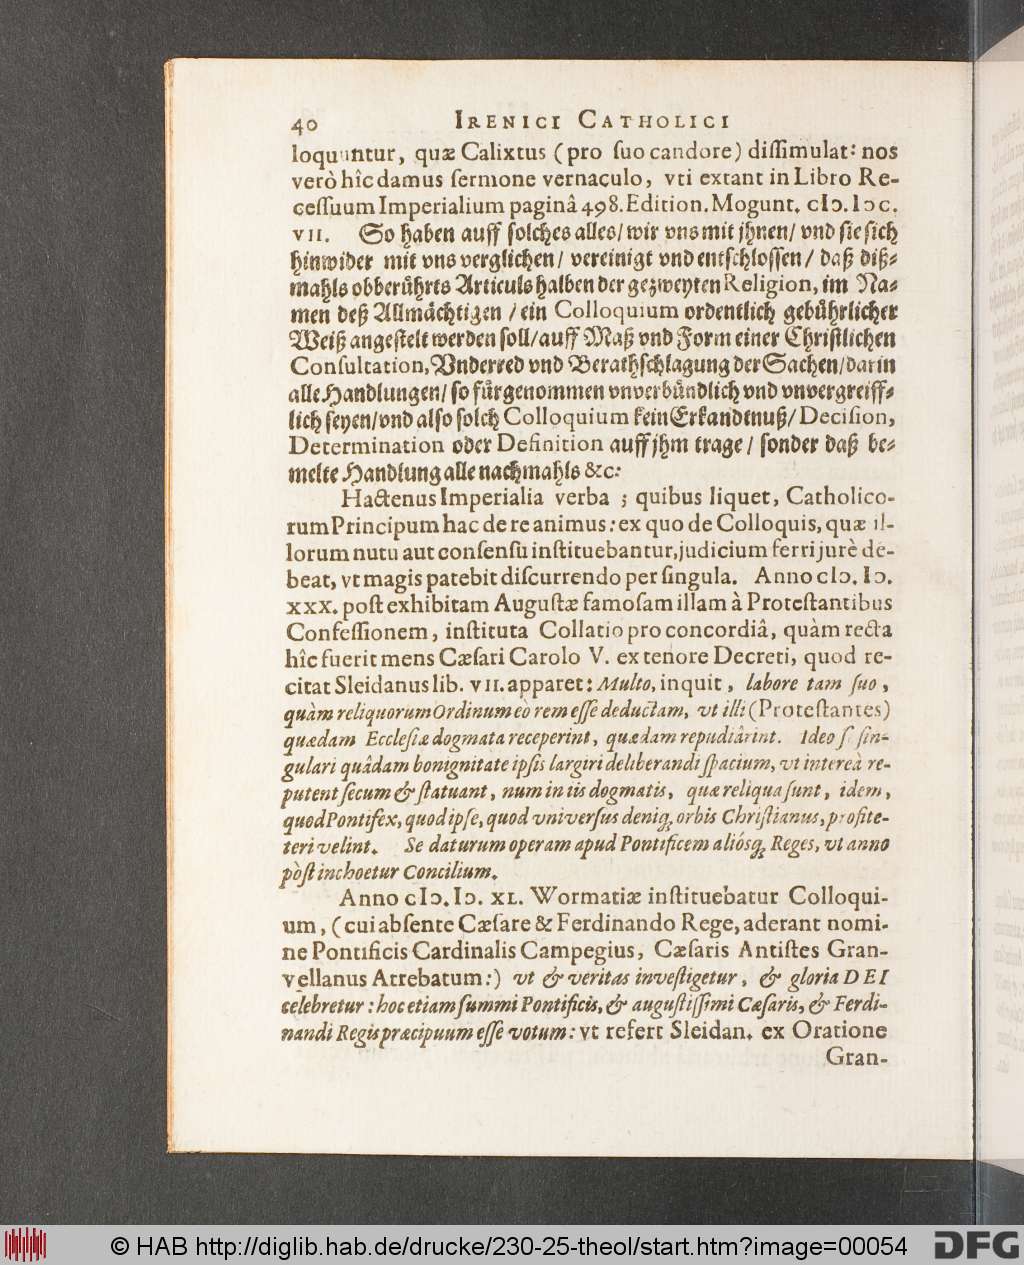 40 IRENICI CATHOLICI
loquuntur, quæ Calixtus (pro suo candore) dissimulat: nos
verò hîc damus sermone vernaculo, vti extant in Libro Re-
cessuum Imperialium paginâ 498. Edition. Mogunt. cIↄ. Iↄc.
VII. So haben auff solches alles/ wir vns mit jhnen/ vnd sie sich
hinwider mit vns verglichen/ vereinigt vnd entschlossen/ daß diß-
mahls obberührts Articuls halben der gezweyten Religion, im Na-
men deß Allmächtigen / ein Colloquium ordentlich gebührlicher
Weiß angestelt werden soll/ auff Maß vnd Form einer Christlichen
Consultation, Vnderred vnd Berathschlagung der Sachen/ darin
alle Handlungen/ so fürgenommen vnverbündlich vnd vnvergreiff-
lich seyen/ vnd also solch Colloquium kein Erkandtnuß/ Decision,
Determination oder Definition auff jhm trage / sonder daß be-
melte Handlung alle nachmahls &c:
Hactenus Imperialia verba ; quibus liquet, Catholico-
rum Principum hac de re animus: ex quo de Colloquis, quæ il-
lorum nutu aut consensu instituebantur, judicium ferri jurè de-
beat, vt magis patebit discurrendo per singula. Anno cIↄ. Iↄ.
XXX. post exhibitam Augustæ famosam illam à Protestantibus
Confessionem, instituta Collatio pro concordiâ, quàm recta
hîc fuerit mens Cæsari Carolo V. ex tenore Decreti, quod re-
citat Sleidanus lib. VII. apparet: Multo, inquit, labore tam suo,
quàm reliquorum Ordinum eò rem esse deductam, vt illi (Protestantes)
quædam Ecclesiæ dogmata receperint, quædam repudiârint. Ideo se sin-
gulari quâdam bonignitate ipsis largiri deliberandi spacium, vt intereà re-
putent secum & statuant, num in iis dogmatis, quæ reliqua sunt, idem,
quod Pontifex, quod ipse, quod vniversus deniq; orbis Christianus, profite-
teri velint. Se daturum operam apud Pontificem aliósq; Reges, vt anno
pòst inchoetur Concilium.
Anno cIↄ. Iↄ. XL. Wormatiæ instituebatur Colloqui-
um, (cui absente Cæsare & Ferdinando Rege, aderant nomi-
ne Pontificis Cardinalis Campegius, Cæsaris Antistes Gran-
vellanus Atrebatum:) vt & veritas investigetur, & gloria DEI
celebretur: hoc etiam summi Pontificis, & augustissimi Cæsaris, & Ferdi-
nandi Regis præcipuum esse votum: vt refert Sleidan. ex Oratione
Gran-
© HAB http://diglib.hab.de/drucke/230-25-theol/start.htm?image=00054
DFG